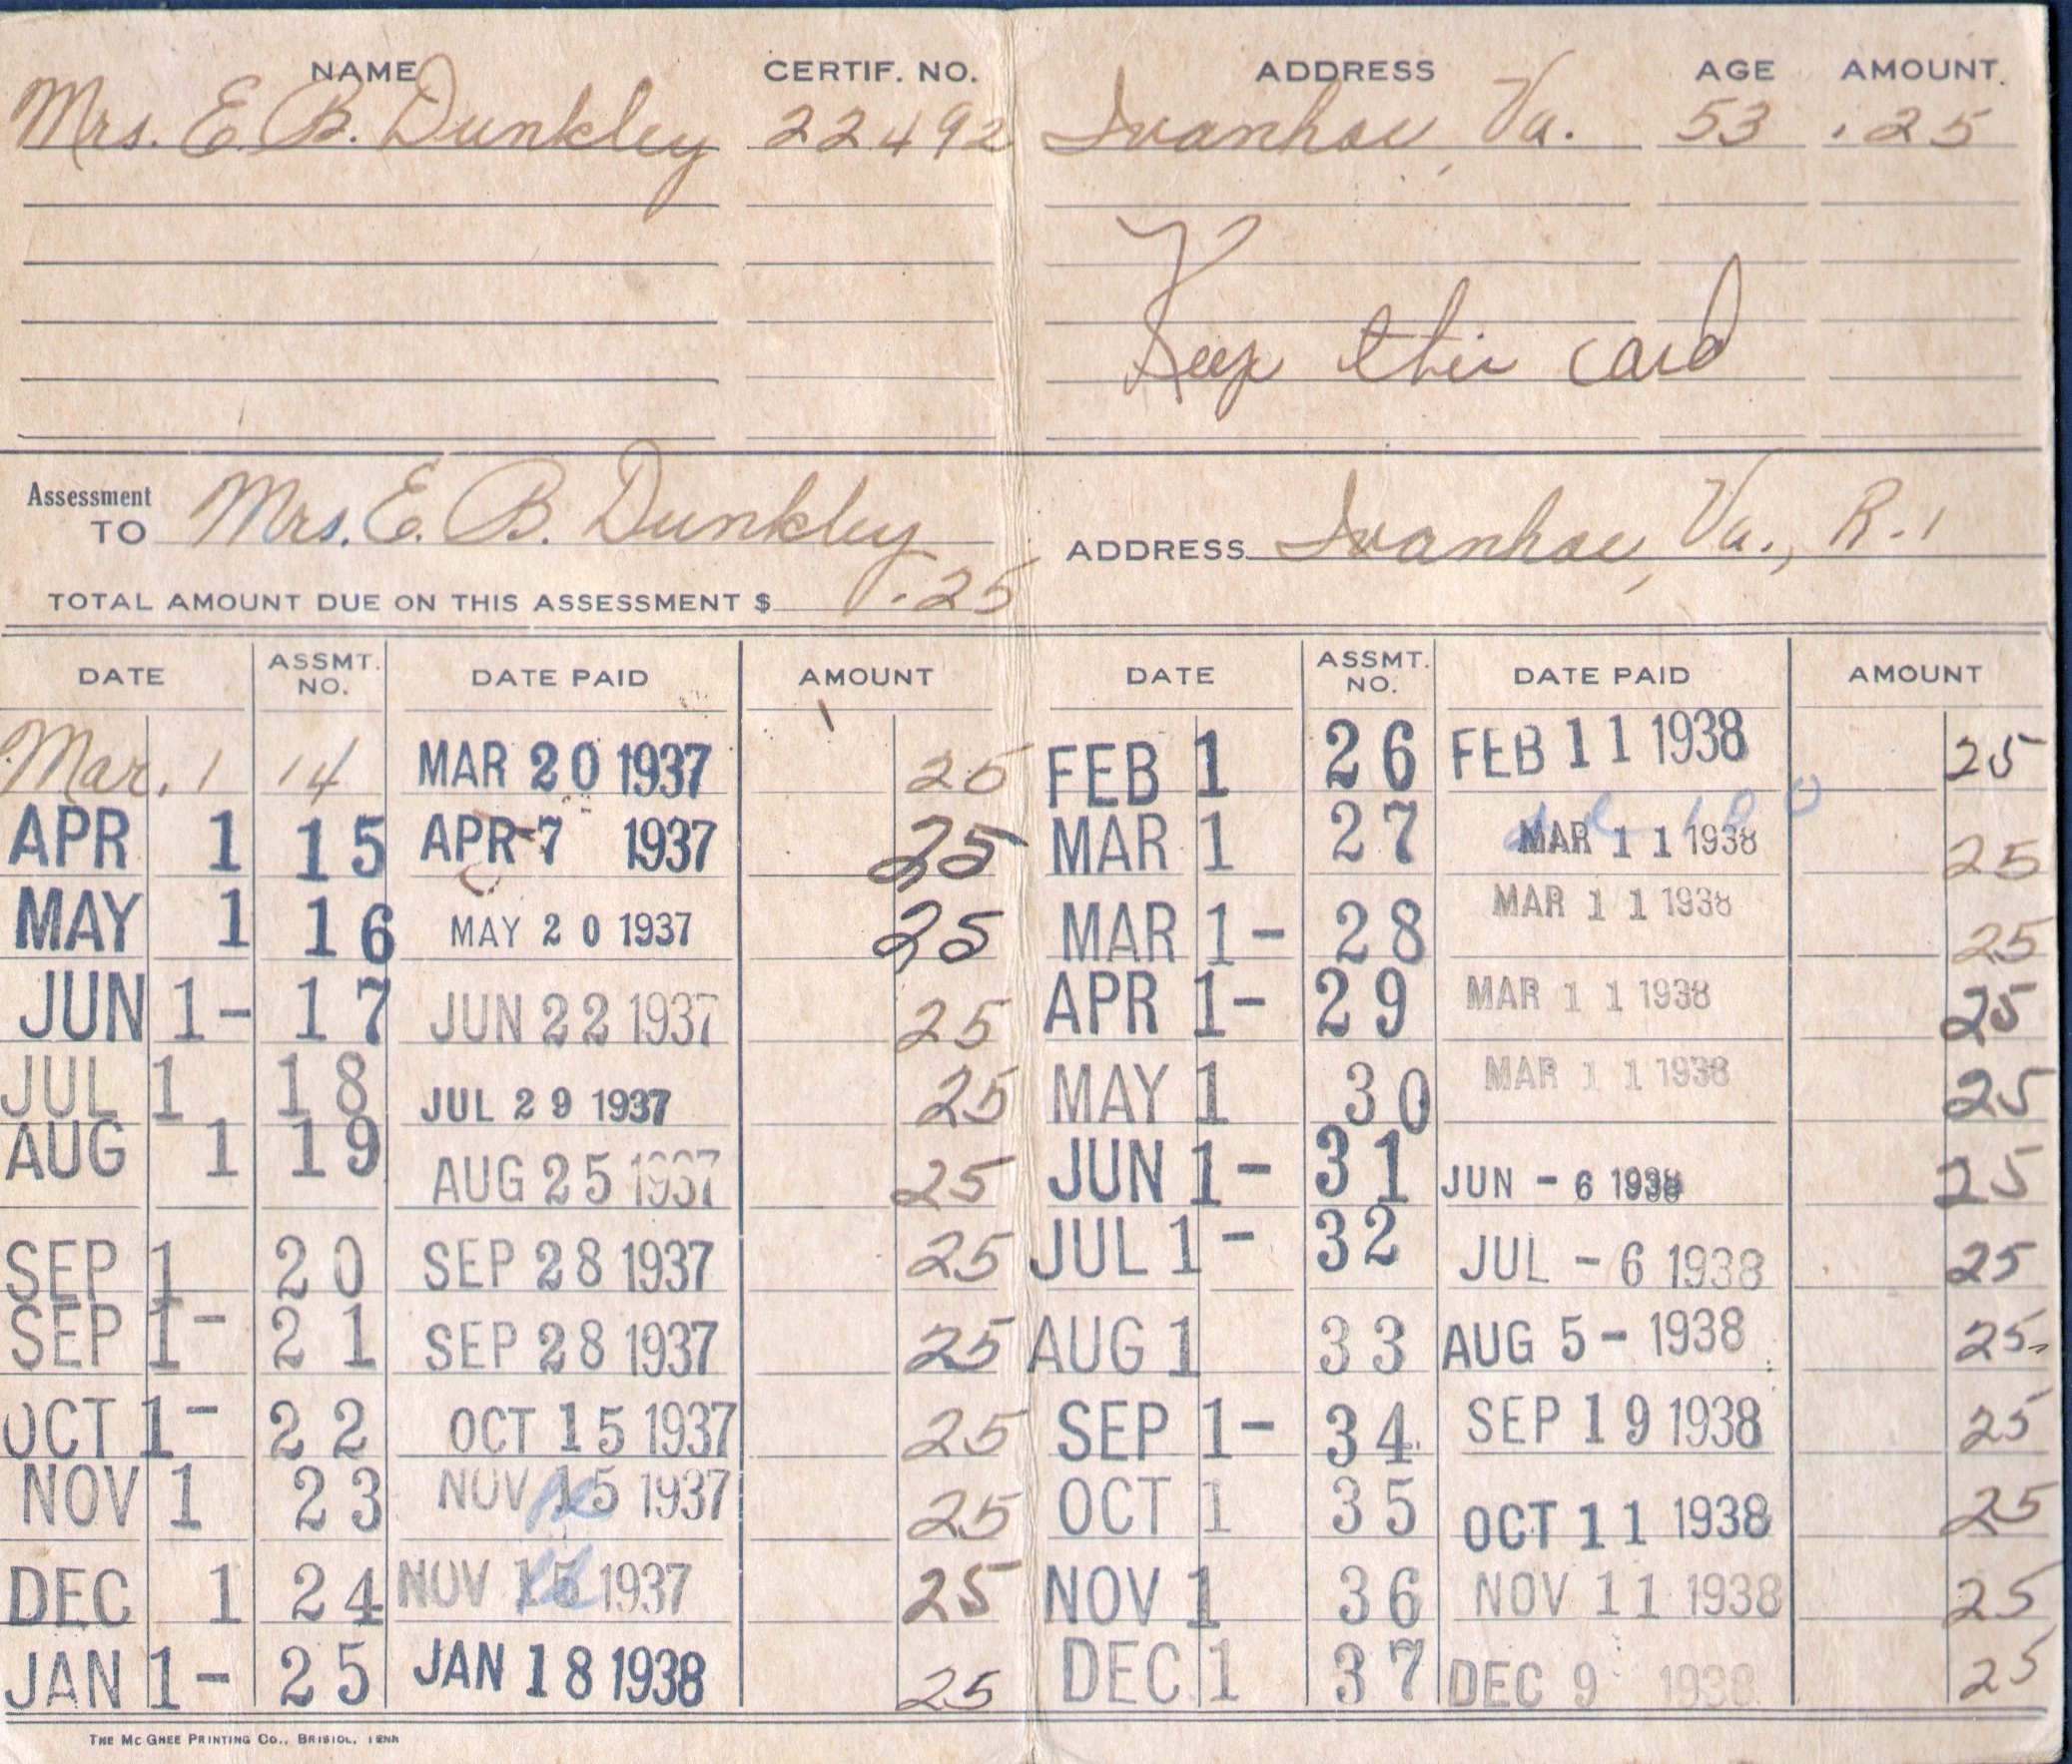 NAME CERTIF. NO. ADDRESS AGE AMOUNT.
Mrs. E. B. Dunkley 22492 Ivanhoe, Va. 53 .25
Keep this card
Assessment TO Mrs. E. B. Dunkley ADDRESS Ivanhoe, Va., R. 1
TOTAL AMOUNT DUE ON THIS ASSESSMENT $ .25
DATE ASSMT. NO. DATE PAID AMOUNT
Mar. 1 14 MAR 20 1937 25
APR 1 15 APR 7 1937 25
MAY 1 16 MAY 20 1937 25
JUN 1- 17 JUN 22 1937 25
JUL 1 18 JUL 29 1937 25
AUG 1 19 AUG 25 1937 25
SEP 1 20 SEP 28 1937 25
SEP 1- 21 SEP 28 1937 25
OCT 1- 22 OCT 15 1937 25
NOV 1 23 NOV 15 1937 25
DEC 1 24 NOV 15 1937 25
JAN 1- 25 JAN 18 1938 25
DATE ASSMT. NO. DATE PAID AMOUNT
FEB 1 26 FEB 11 1938 25
MAR 1 27 MAR 11 1938 25
MAR 1- 28 MAR 11 1938 25
APR 1- 29 MAR 11 1938 25
MAY 1 30 MAR 11 1938 25
JUN 1- 31 JUN - 6 1938 25
JUL 1- 32 JUL - 6 1938 25
AUG 1 33 AUG 5 - 1938 25
SEP 1- 34 SEP 19 1938 25
OCT 1 35 OCT 11 1938 25
NOV 1 36 NOV 11 1938 25
DEC 1 37 DEC 9 1938 25
THE MCGHEE PRINTING CO., BRISTOL, TENN